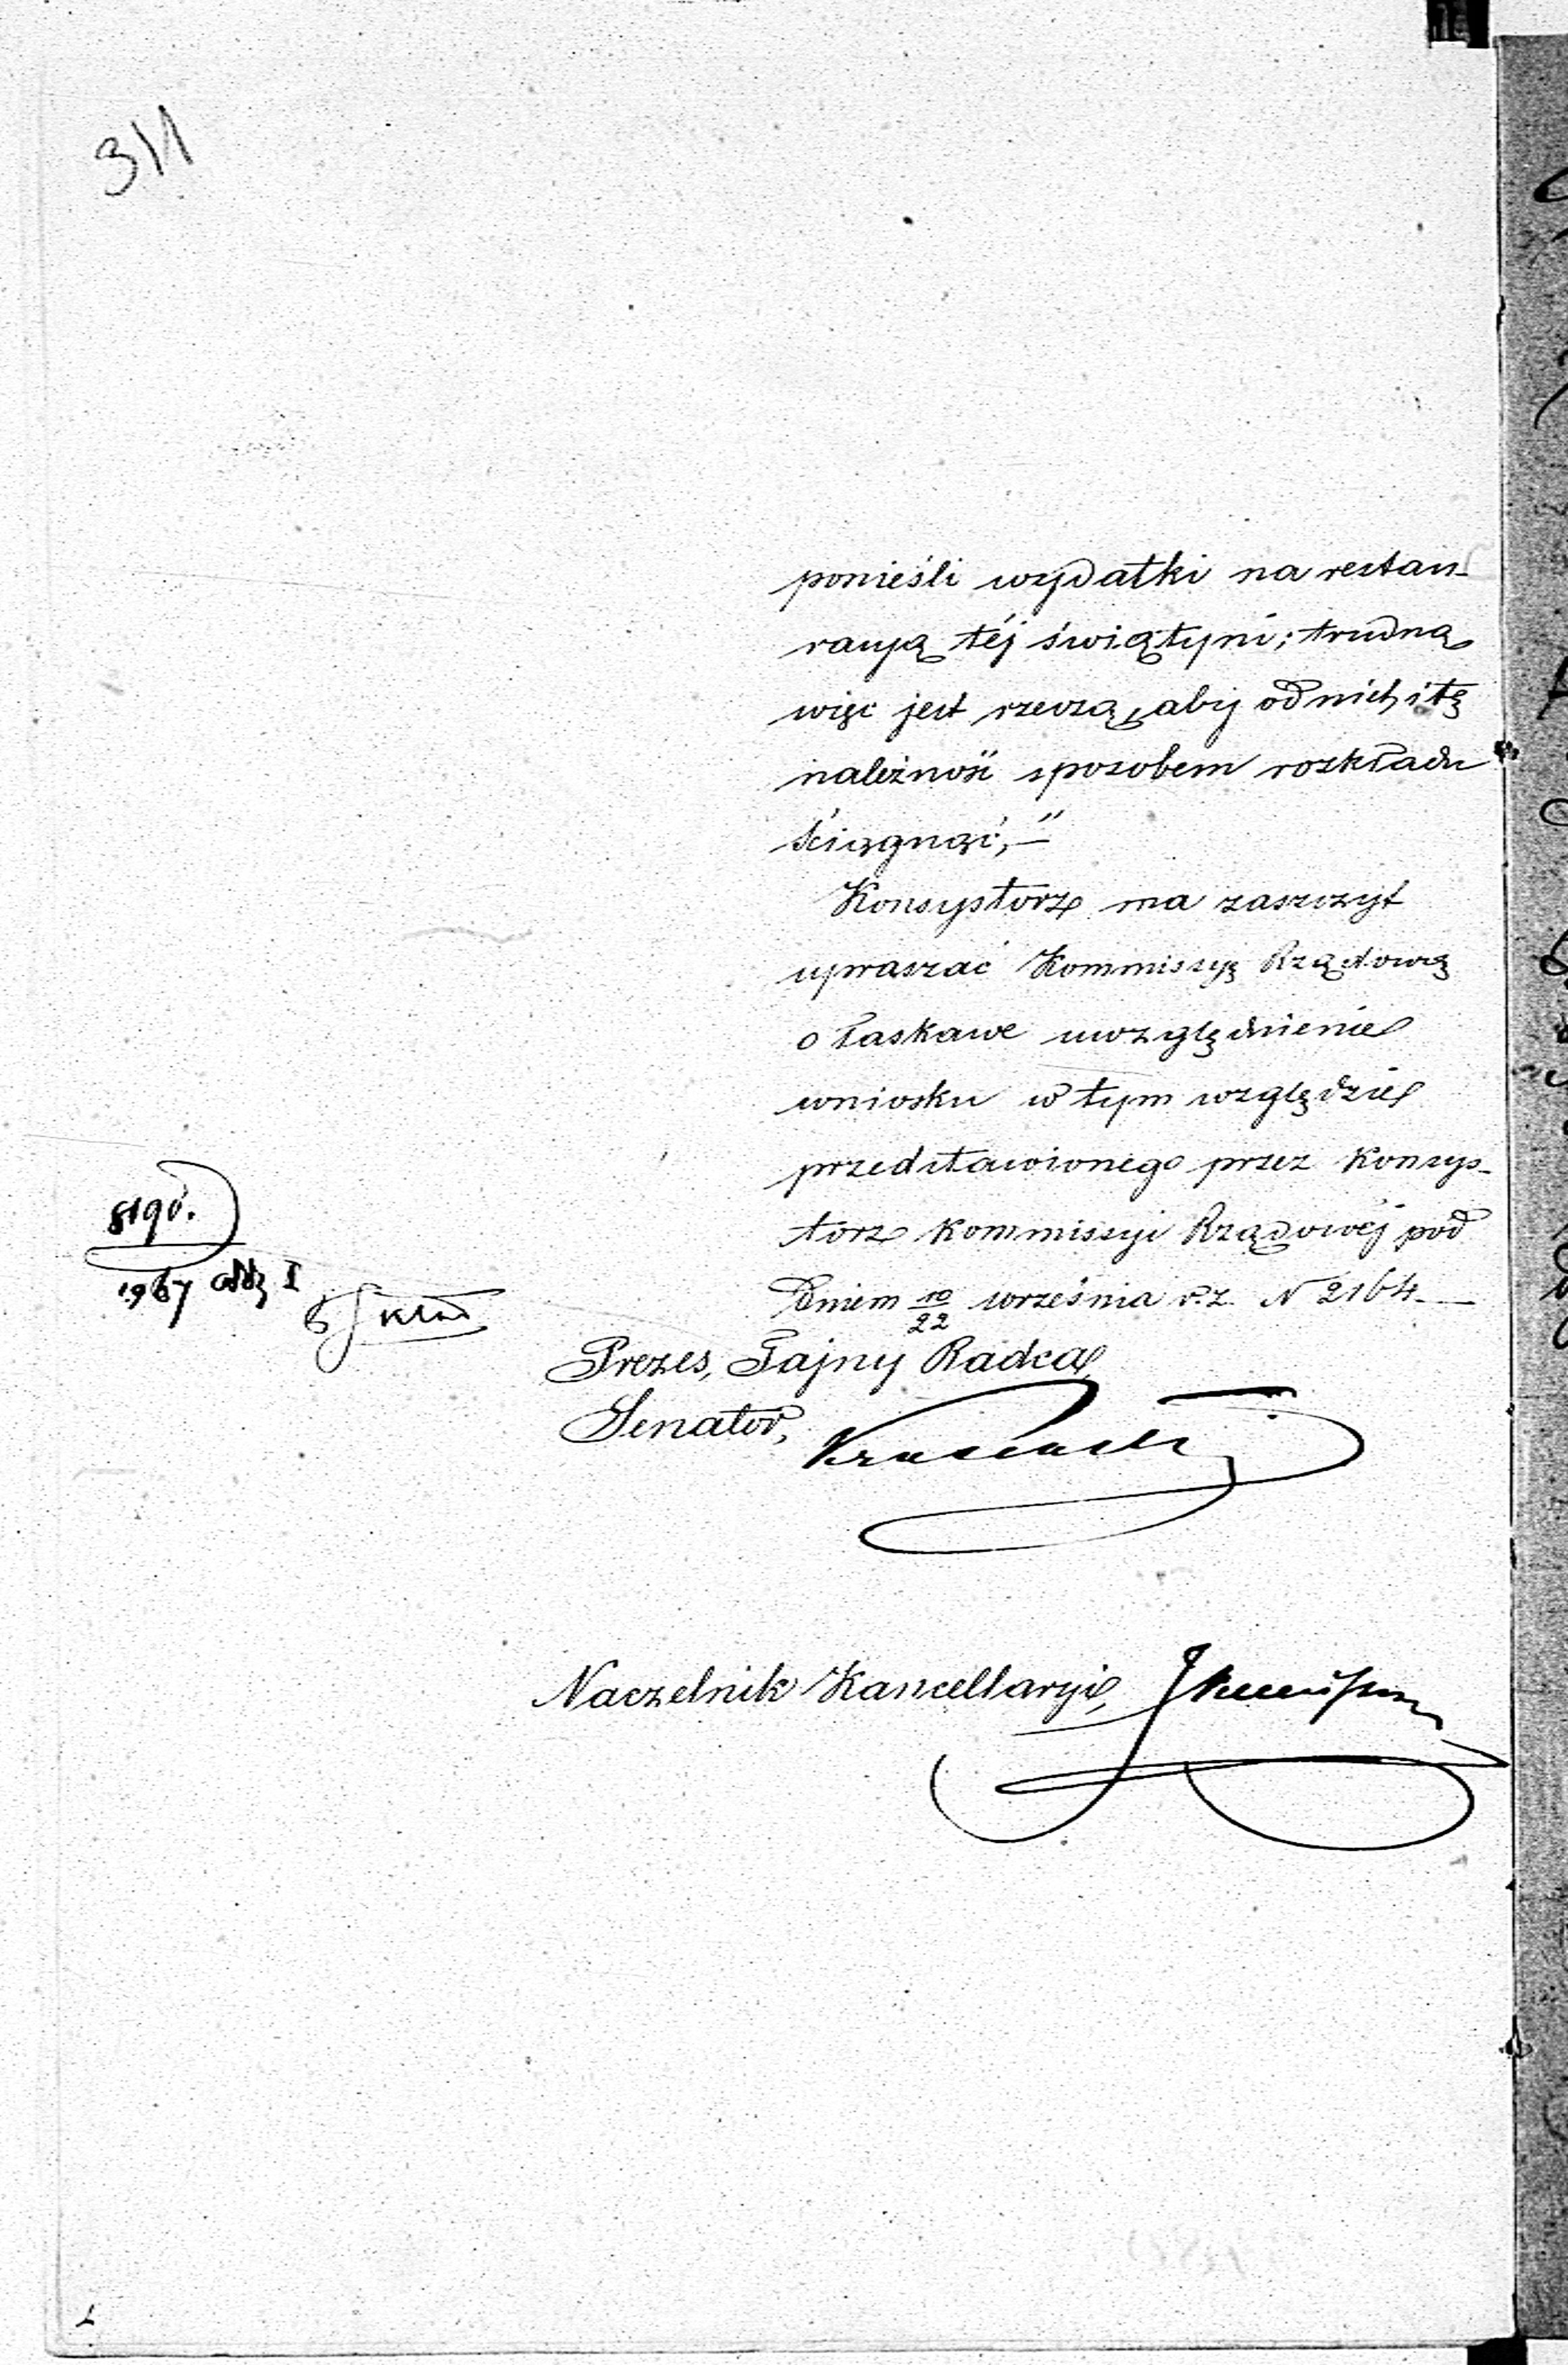 311
ponieśli wydatki na restau-
racyą téj świątyni; trudną
więc jest rzeczą, aby od nich i tę
należność sposobem rozkładu
ściągnąć,—"
Konsystorz ma zaszczyt
upraszać Kommissyę Rządową
o łaskawe uwzględnienie
wniosku w tym względzie
przedstawionego przez Konsys-
torz Kommissyi Rządowéj pod
dniem 10/22 września r.z. N 2164.—
Prezes, Tajny Radca,
Senator,
Naczelnik Kancellaryi,